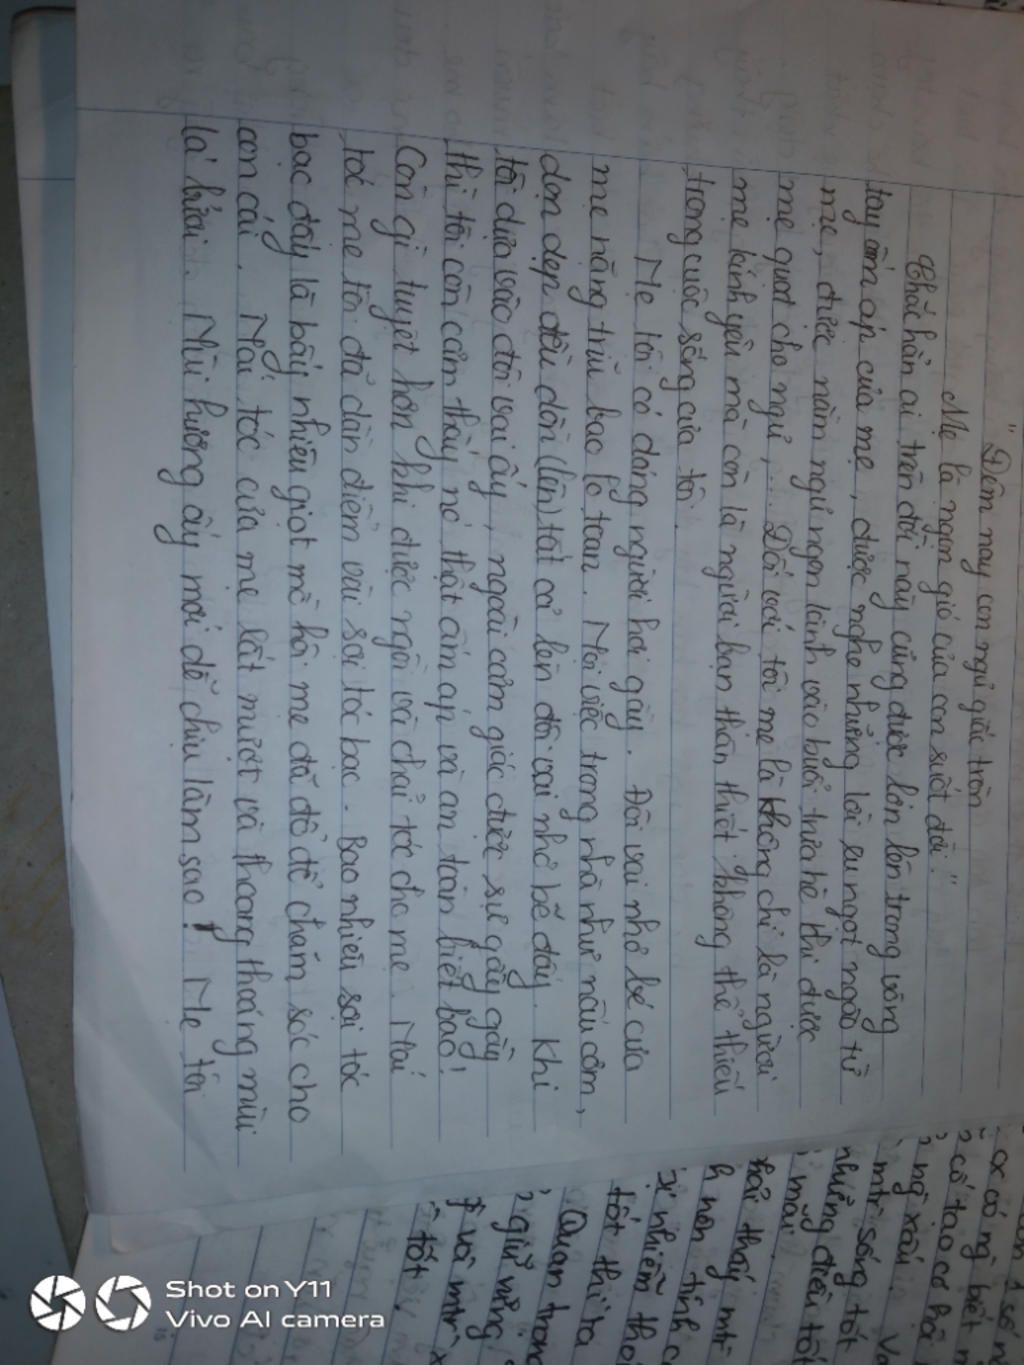 "Đêm nay con ngủ giấc tròn
Mẹ là ngọn gió của con suốt đời."
Chắc hẳn ai trên đời này cũng được lớn lên trong vòng
tay ấm áp của mẹ, được nghe những lời ru ngọt ngào từ
mẹ, được nằm ngủ ngon lành vào buổi trưa hè khi được
mẹ quạt cho ngủ,... Đối với tôi mẹ là không chỉ là người
mẹ kính yêu mà còn là người bạn thân thiết không thể thiếu
trong cuộc sống của tôi.
Mẹ tôi có dáng người hơi gầy. Đôi vai nhỏ bé của
mẹ nặng trĩu bao lo toan. Mọi việc trong nhà như nấu cơm,
dọn dẹp đều dồn (lên) tất cả lên đôi vai nhỏ bé đấy. Khi
tôi dựa vào đôi vai ấy, ngoài cảm giác được sự gầy gầy
thì tôi còn cảm thấy nó thật ấm áp và an toàn biết bao!
Còn gì tuyệt hơn khi được ngồi và chải tóc cho mẹ. Mái
tóc mẹ tôi đã dần điểm vài sợi tóc bạc. Bao nhiêu sợi tóc
bạc đấy là bấy nhiêu giọt mồ hôi mẹ đã đổ để chăm sóc cho
con cái. Mái tóc của mẹ lất mượt và thoang thoảng mùi
lá bưởi. Mùi hương ấy mới dễ chịu làm sao! Mẹ tôi
có ng biết
có tạo cơ hội
ng xấu.
mtr sống tốt
những điều tốt
mãi.
phải thay mtr
h non tính c
nhiễm thó
tốt thì ta
Quan trọng
giữ nững
và mtr x
tốt.
Shot on Y11
Vivo AI camera